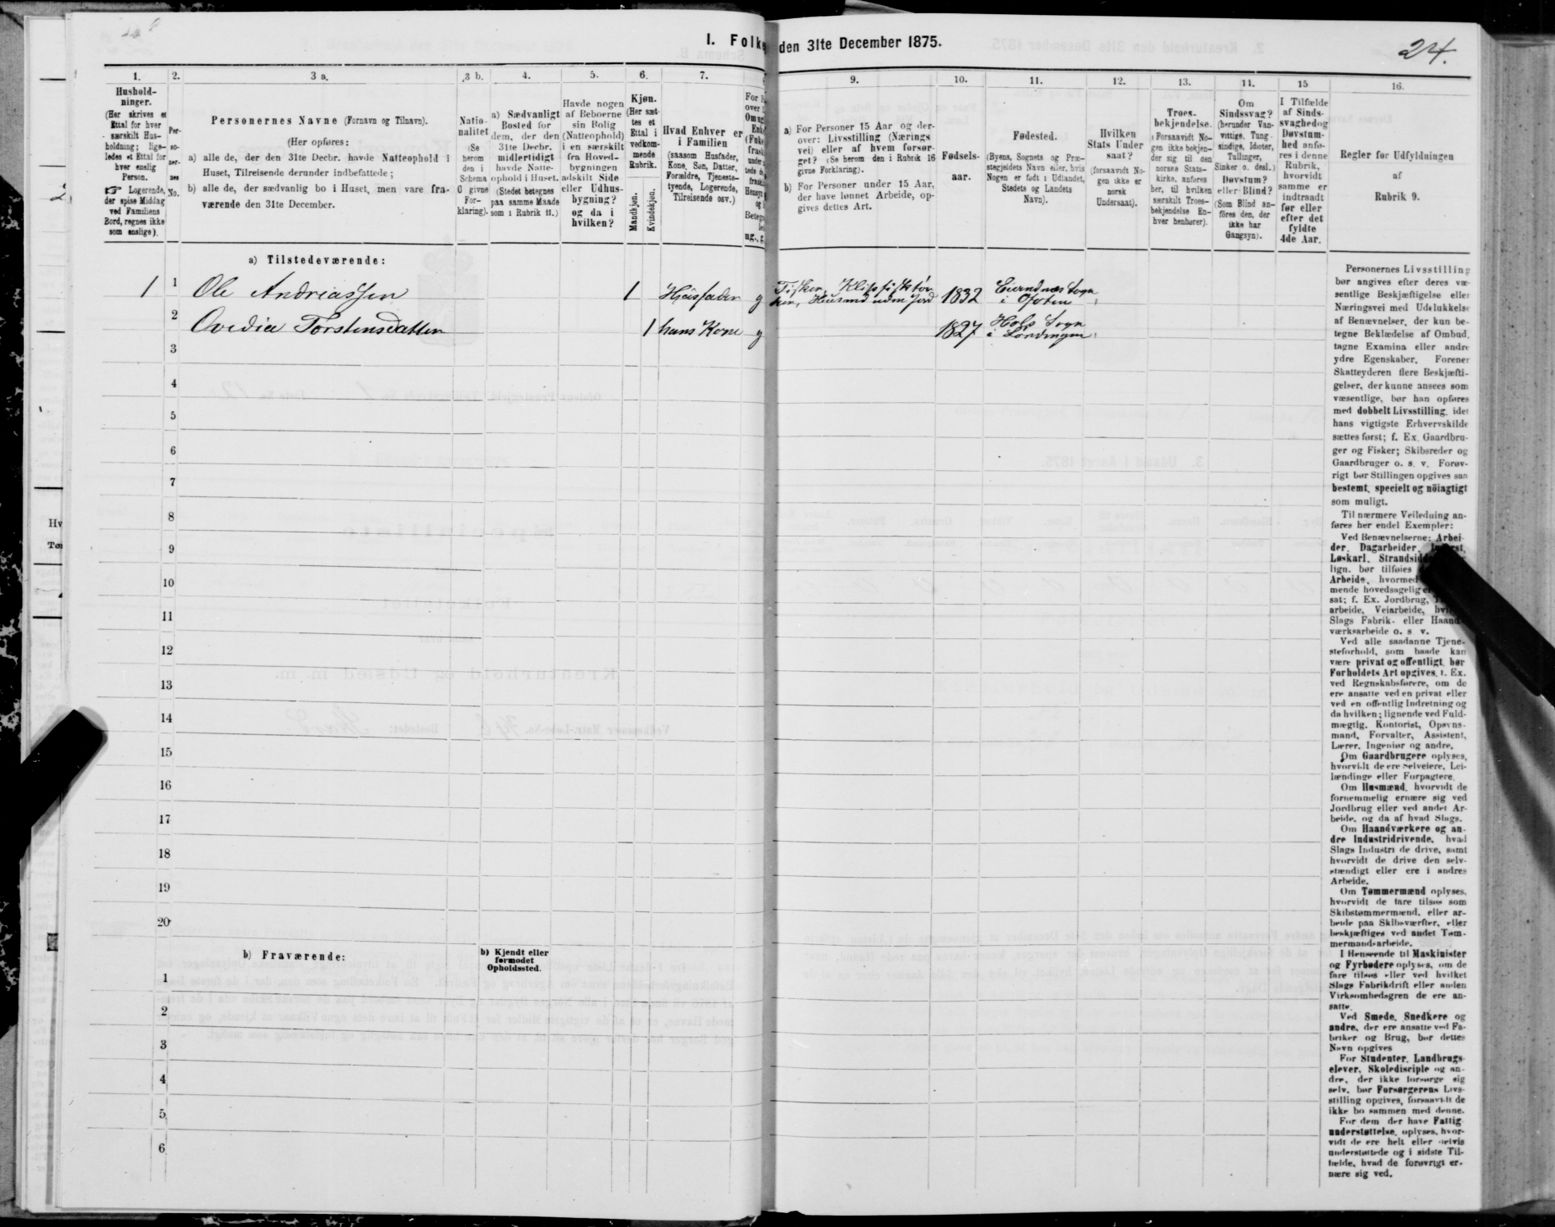 I. Folke den 31te December 1875.
24.
1.
2.
3 a.
3 b.
4.
5.
6.
7.
9.
10.
11.
12.
13.
14.
15
16.
Hushold-
ninger.
(Her skrives et
Ettal for hver
særskilt Hus-
holdning; lige-
ledes et Ettal for
hver enslig
Person.
☞ Logerende,
der spise Middag
ved Familiens
Bord, regnes ikke
som enslige).
Per-
so-
ner-
nes
No.
Personernes Navne (Fornavn og Tilnavn).
(Her opføres:
a) alle de, der den 31te Decbr. havde Natteophold i
Huset, Tilreisende derunder indbefattede;
b) alle de, der sædvanlig bo i Huset, men vare fra-
værende den 31te December.
Natio-
nalitet
(Se
herom
den i
Schema
C givne
For-
klaring).
a) Sædvanligt
Bosted for
dem, der den
31te Decbr.
midlertidigt
havde Natte-
ophold i Huset.
(Stedet betegnes
paa samme Maade
som i Rubrik 11.)
Havde nogen
af Beboerne
sin Bolig
(Natteophold)
i en særskilt
fra Hoved-
bygningen
adskilt Side
eller Udhus-
bygning?
og da i
hvilken?
Kjøn.
(Her sæt-
tes et
Ettal i
vedkom-
mende
Rubrik.
Mandkjøn.
Kvindekjøn.
Hvad Enhver er
i Familien
(saasom Husfader,
Kone, Søn, Datter,
Forældre, Tjeneste-
tyende, Logerende,
Tilreisende osv.)
a) For Personer 15 Aar og der-
over: Livsstilling (Nærings
vei) eller af hvem forsør-
get? (Se herom den i Rubrik 16
givne Forklaring).
b) For Personer under 15 Aar,
der have lønnet Arbeide, op-
gives dettes Art.
Fødsels-
aar.
Fødested.
(Byens, Sognets og Præ-
stegjeldets Navn eller, hvis
Nogen er født i Udlandet,
Stedets og Landets
Navn).
Hvilken
Stats Under
saat?
(forsaavidt No-
gen ikke er
norsk
Undersaat).
Troes-
bekjendelse.
(Forsaavidt No-
gen ikke bekjen-
der sig til den
norske Stats-
kirke, anføres
her, til hvilken
særskilt Troes-
bekjendelse En-
hver henhører).
Om
Sindssvag?
(herunder Van-
vittige, Tung-
sindige, Idioter,
Tullinger,
Sinker o. desl.)
Døvstum?
eller Blind?
(Som Blind an-
føres den, der
ikke har
Gangsyn).
I Tilfælde
af Sinds-
svaghed og
Døvstum-
hed anfø-
res i denne
Rubrik,
hvorvidt
samme er
indtraadt
før eller
efter det
fyldte
4de Aar.
Regler for Udfyldningen
af
Rubrik 9.
a) Tilstedeværende:
1 1 Ole Andriassen 1 Husfader g Fisker, Klipfisktør-
ker, Husmd uden Jord 1832 Evendnæs Sogn
i Ofoten
2 Ovedia Torstensdatter 1 hans Kone g 1827 Hols Sogn
i Lødingen
3
4
5
6
7
8
9
10
11
12
13
14
15
16
17
18
19
20
b) Fraværende:
b) Kjendt eller
formodet
Opholdssted.
1
2
3
4
5
6
Personernes Livsstilling
bør angives efter deres væ-
sentlige Beskjæftigelse eller
Næringsvei med Udelukkelse
af Benævnelser, der kun be-
tegne Beklædelse af Ombud,
tagne Examina eller andre
ydre Egenskaber. Forener
Skatteyderen flere Beskjæfti-
gelser, der kunne ansees som
væsentlige, bør han opføres
med dobbelt Livsstilling, idet
hans vigtigste Erhvervskilde
sættes først; f. Ex. Gaardbru-
ger og Fisker; Skibsreder og
Gaardbruger o. s. v. Forøv-
rigt bør Stillingen opgives saa
bestemt, specielt og nöiagtigt
som muligt.
Til nærmere Veiledning an-
føres her endel Exempler:
Ved Benævnelserne: Arbei-
der, Dagarbeider,
Løskarl, Strandsid
lign. bør tilføies
Arbeide, hvormed
mende hovedsagelig
sat; f. Ex. Jordbrug,
arbeide, Veiarbeide,
Slags Fabrik- eller Haand-
værksarbeide o. s. v.
Ved alle saadanne Tjene-
steforhold, som baade kan
være privat og offentligt, bør
Forholdets Art opgives, f. Ex.
ved Regnskabsførere, om de
ere ansatte ved en privat eller
ved en offentlig Indretning og
da hvilken; lignende ved Fuld-
mægtig, Kontorist, Opsyns-
mand, Forvalter, Assistent,
Lærer, Ingeniør og andre.
Om Gaardbrugere oplyses,
hvorvidt de ere Selveiere, Lei-
lændinge eller Forpagtere.
Om Husmænd, hvorvidt de
fornemmelig ernære sig ved
Jordbrug eller ved andet Ar-
beide, og da af hvad Slags.
Om Haandværkere og an-
dre Industridrivende, hvad
Slags Industri de drive, samt
hvorvidt de drive den selv-
stændigt eller ere i andres
Arbeide.
Om Tømmermænd oplyses,
hvorvidt de fare tilsøs som
Skibstømmermænd, eller ar-
beide paa Skibsværfter, eller
beskjæftiges ved andet Tøm-
mermandsarbeide.
I Henseende til Maskinister
og Fyrbødere oplyses, om de
fare tilsøs eller ved hvilket
Slags Fabrikdrift eller anden
Virksomhedsgren de ere an-
satte.
Ved Smede, Snedkere og
andre, der ere ansatte ved Fa-
briker og Brug, bør dettes
Navn opgives
For Studenter, Landbrugs-
elever, Skoledisciple og an-
dre, der ikke forsørge sig
selv, bør Forsørgerens Livs-
stilling opgives, forsaavidt de
ikke bo sammen med denne.
For dem der have Fattig-
understøttelse, oplyses, hvor-
vidt de ere helt eller delvis
understøttede og i sidste Til-
fælde, hvad de forøvrigt er-
nære sig ved.